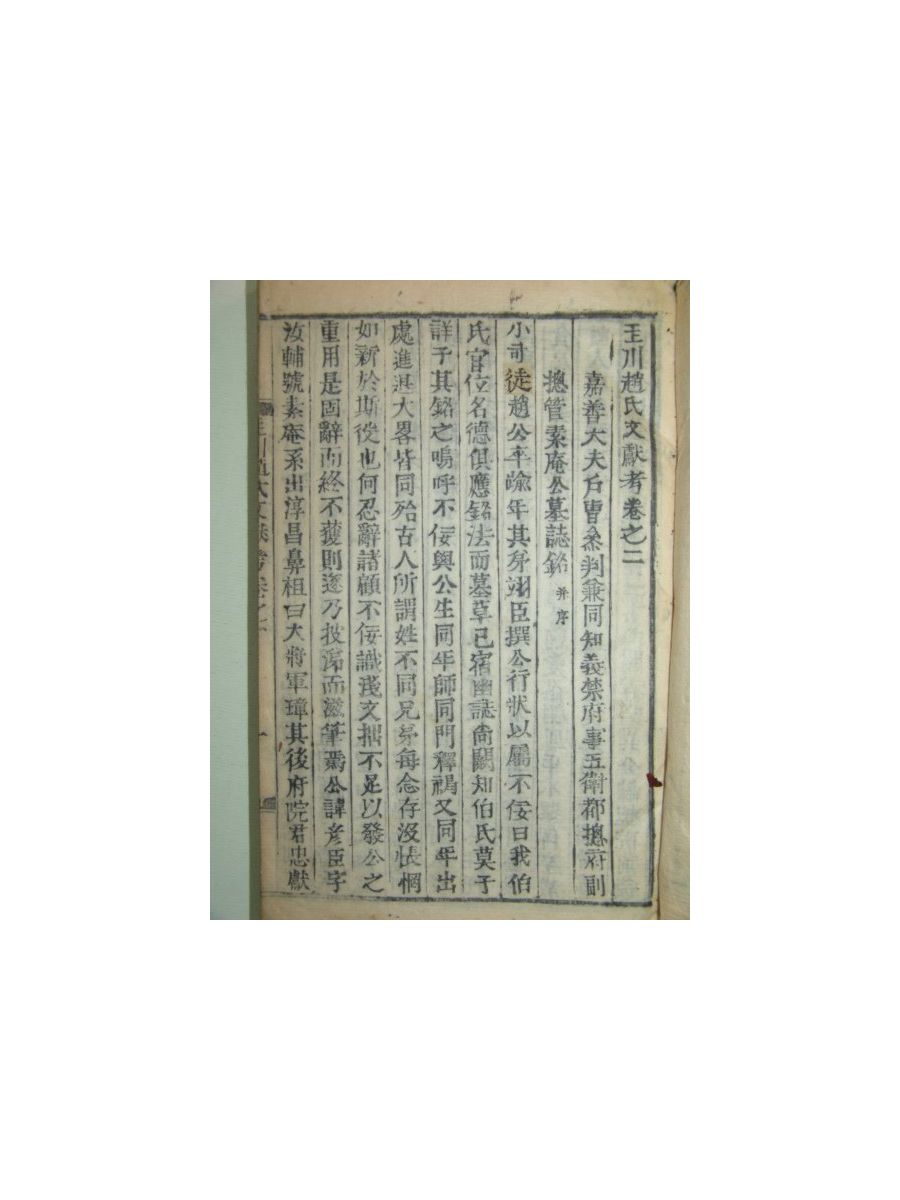 玉川趙氏文獻考卷之二
嘉善大夫戶曹叅判兼同知義禁府事五衛都摠府副
摠管素庵公墓誌銘 并序
小司徒趙公卒踰年其弟翊臣撰公行狀以屬不佞曰我伯
氏官位名德俱應銘法而墓草已宿幽誌尙闕知伯氏莫子
詳子其銘之嗚呼不佞與公生同年師同門釋褐又同年出
處進退大畧皆同殆古人所謂姓不同兄弟每念存沒悵惘
如新於斯役也何忍辭諸顧不佞識淺文拙不足以發公之
重用是固辭而終不獲則遂乃抆涕而滋筆焉公諱彦臣字
汝輔號素庵系出淳昌鼻祖曰大將軍璋其後府院君忠獻
玉川趙氏文獻考卷之二 一